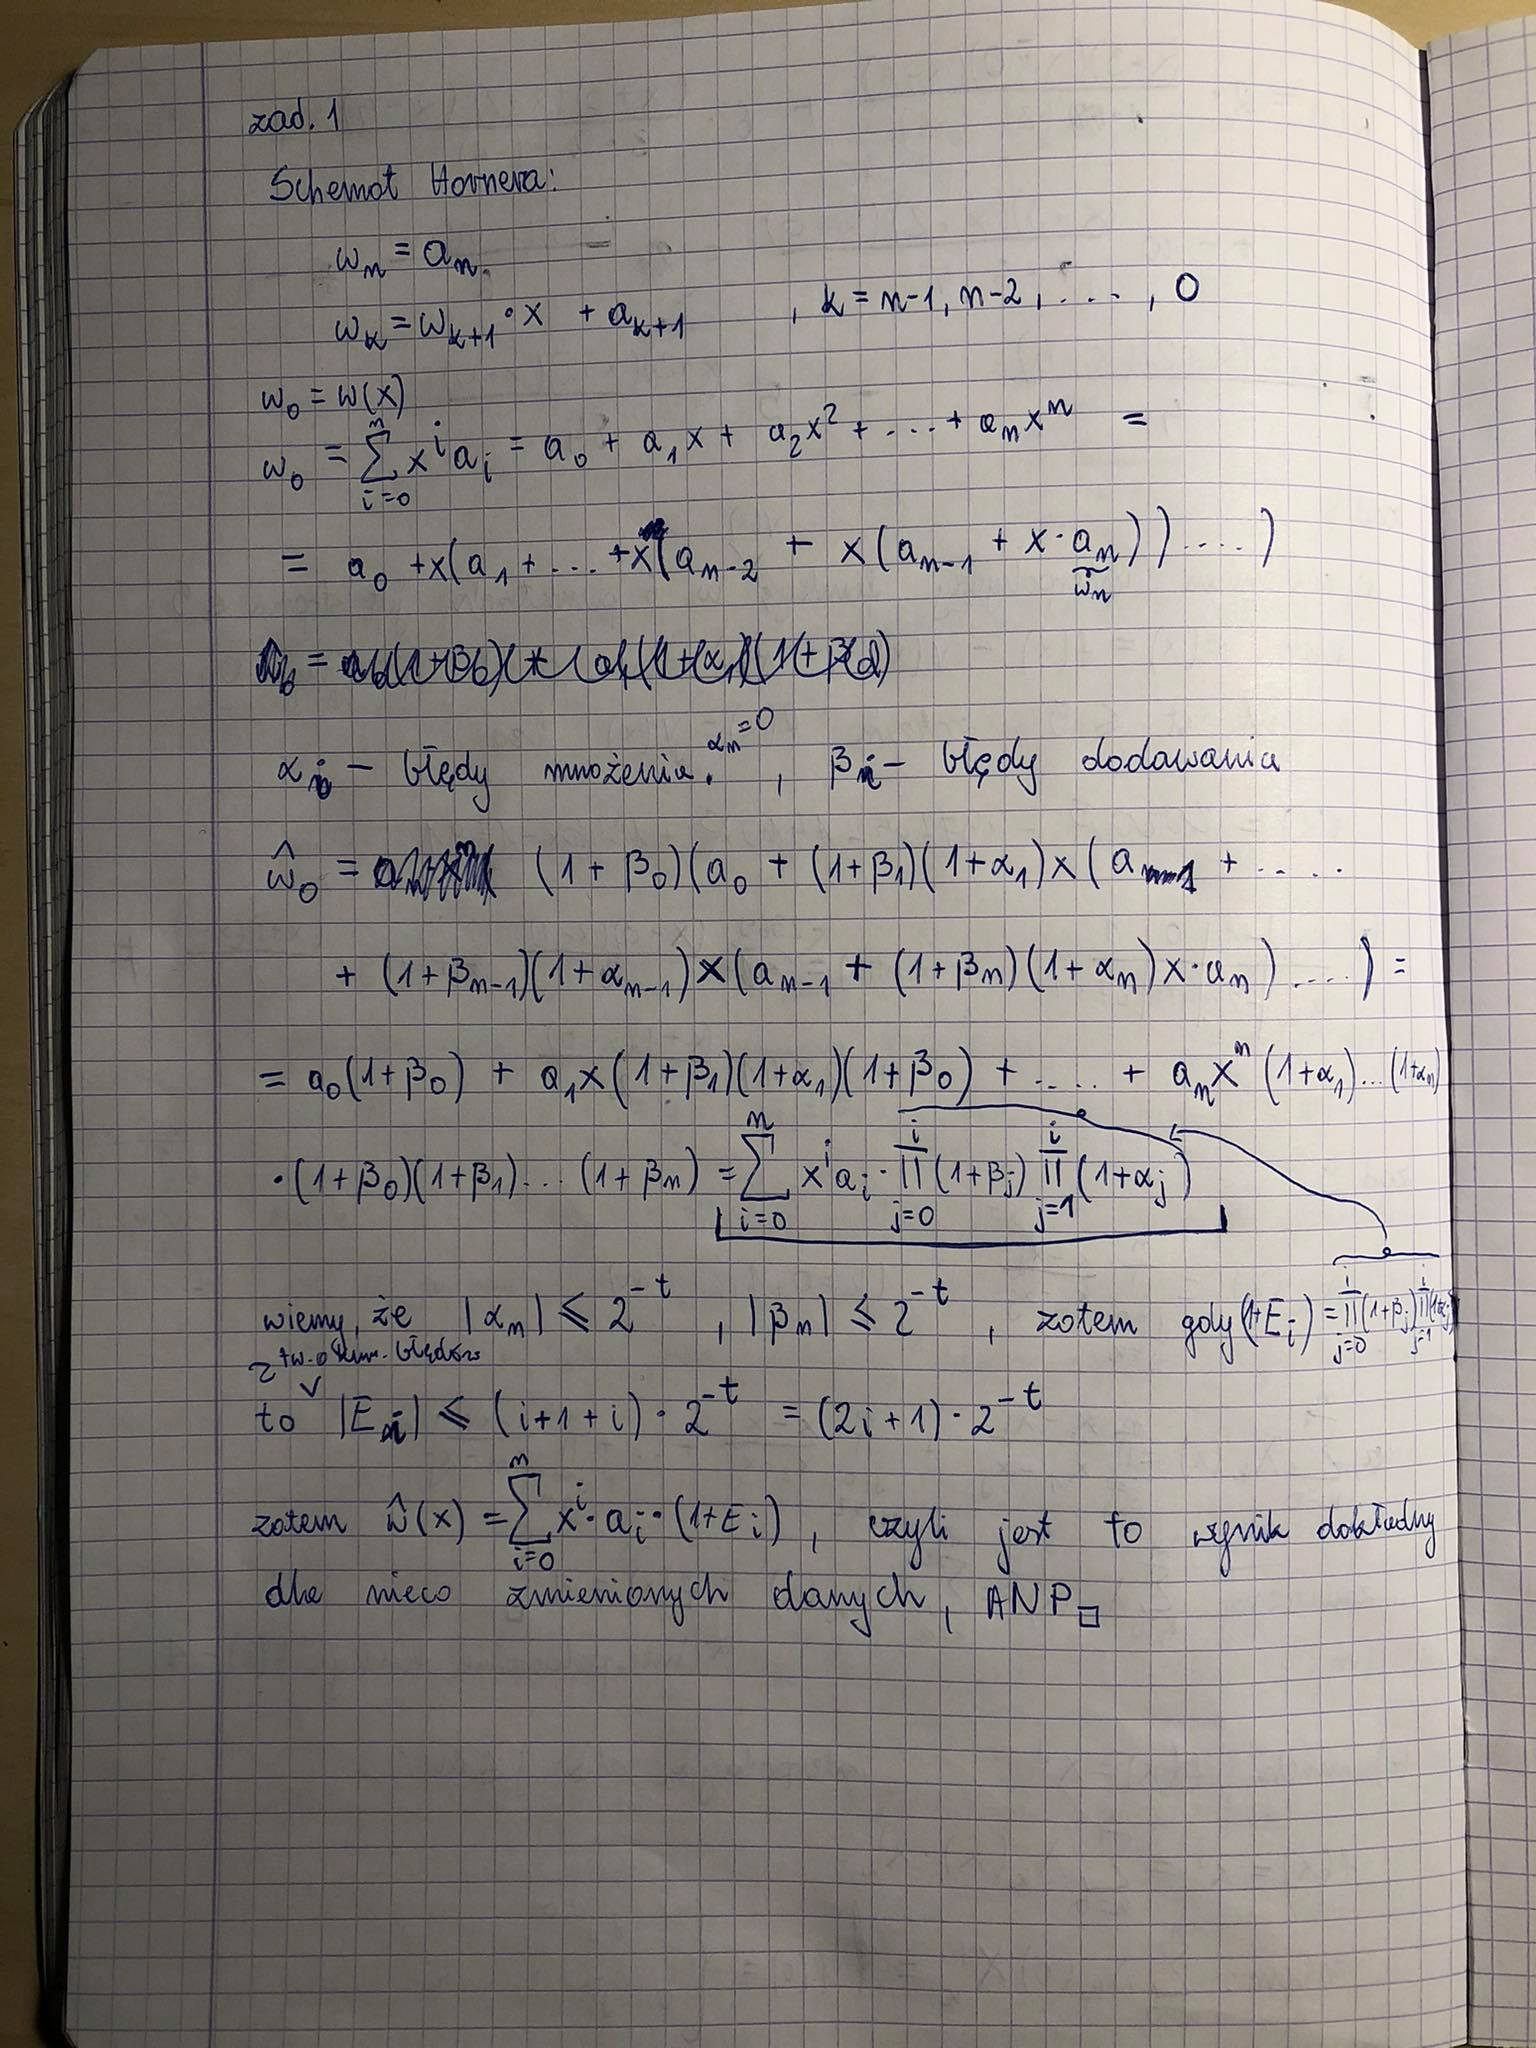 zad. 1
Schemat Hornera:
w_n = a_n
w_k = w_{k+1} · x + a_{k+1} , k = n-1, n-2, ...., 0
w_0 = w(x)
w_0 = ∑_{i=0}^{n} x^i a_i = a_0 + a_1 x + a_2 x^2 + .... + a_n x^n =
= a_0 + x(a_1 + ... + x(a_{n-2} + x(a_{n-1} + x · a_n)) ....)
w_n
α_i - błędy mnożenia. α_n = 0 , β_i - błędy dodawania
ŵ_0 = (1 + β_0)(a_0 + (1+β_1)(1+α_1)x(a_1 + ....
+ (1+β_{n-1})(1+α_{n-1})x(a_{n-1} + (1+β_n)(1+α_n)x·a_n) ....) =
= a_0(1+β_0) + a_1x(1+β_1)(1+α_1)(1+β_0) + .... + a_n x^n (1+α_1)...(1+α_n)
·(1+β_0)(1+β_1)...(1+β_n) = ∑_{i=0}^{n} x^i a_i · ∏_{j=0}^{i} (1+β_j) ∏_{j=1}^{i} (1+α_j)
wiemy, że |α_n| ≤ 2^{-t} , |β_n| ≤ 2^{-t} , zatem gdy (1+E_i) = ∏_{j=0}^{i} (1+β_j) ∏_{j=1}^{i} (1+α_j)
z tw. o kum. błędów
to |E_i| ≤ (i+1+i) · 2^{-t} = (2i+1) · 2^{-t}
zatem ŵ(x) = ∑_{i=0}^{n} x^i · a_i · (1+E_i) , czyli jest to wynik dokładny
dla nieco zmienionych danych, ANP □